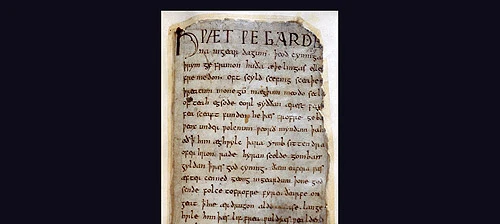 HǷÆT ǷE GARDE
na ingear dagum. þeod cyninga
þrym ge frunon huða æþelingas elle
fre medon. oft scyld scefing sceaþe
þreatum monegū mægþum meodo setla
of teah egsode eorl syððan ærest ƿea
fea sceaft funden he þæs frofre geba
ƿeox under ƿolcnum ƿeorð myndum þah
oð ꝥ him æghƿylc þara ymb sittendra
ofer hron rade hyran scolde gomban
gyldan ꝥ ƿæs god cyning. ðæm eafera ƿæs
æfter cenned geong ingeardum þone god
sende folce tofrofre fyren ðearfe on
geat ꝥ hie ær drugon aldor ase. lange
hƿile him þæs lif frea ƿuldres ƿealdend